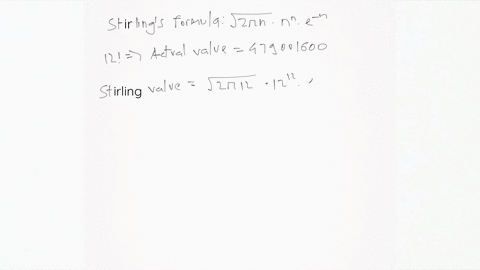 Stirling's formula: √2πn · nⁿ · e⁻ⁿ
12! => Actual value = 479001600
Stirling value = √2π12 · 12¹² ·